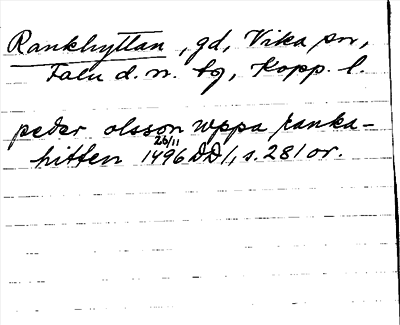 Rankhyttan, gd, Vika sn,
Falu d. n. tg, Kopp. l.
peder olsson vppa ranka-
hitten 26/11 1496 DD 1, s. 281 or.